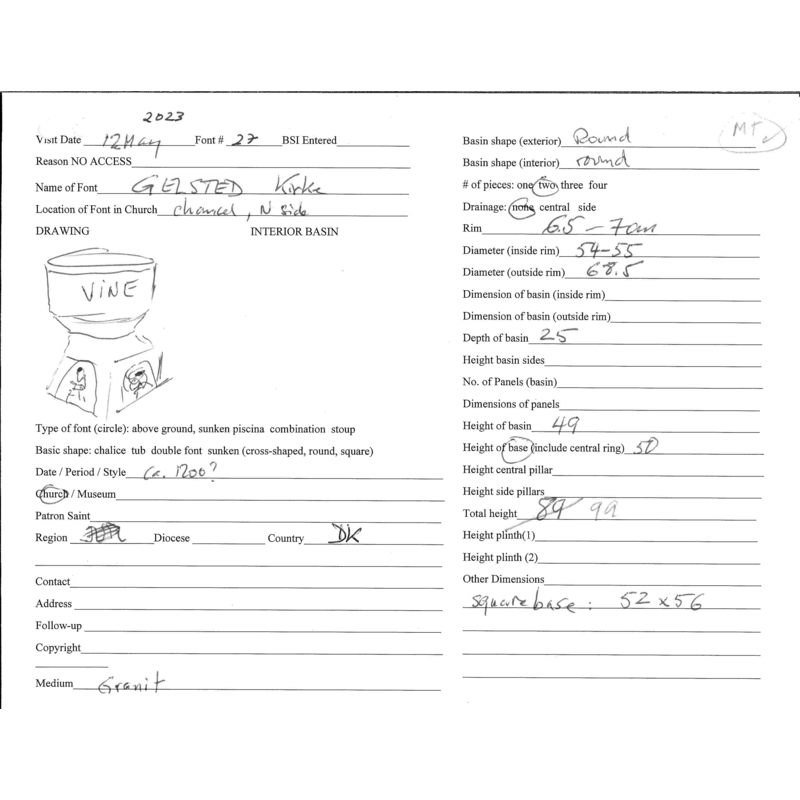 2023
Visit Date 12 May Font # 27 BSI Entered
Reason NO ACCESS
Name of Font GELSTED Kirke
Location of Font in Church chancel, N side
DRAWING INTERIOR BASIN
VINE
Type of font (circle): above ground, sunken piscina combination stoup
Basic shape: chalice tub double font sunken (cross-shaped, round, square)
Date / Period / Style Ca. 1200?
Church / Museum
Patron Saint
Region Diocese Country DK
Contact
Address
Follow-up
Copyright
Medium Granit
MT
Basin shape (exterior) Round
Basin shape (interior) round
# of pieces: one two three four
Drainage: none central side
Rim 6.5 – 7cm
Diameter (inside rim) 54–55
Diameter (outside rim) 68.5
Dimension of basin (inside rim)
Dimension of basin (outside rim)
Depth of basin 25
Height basin sides
No. of Panels (basin)
Dimensions of panels
Height of basin 49
Height of base (include central ring) 50
Height central pillar
Height side pillars
Total height 89 99
Height plinth(1)
Height plinth (2)
Other Dimensions
square base: 52 x 56